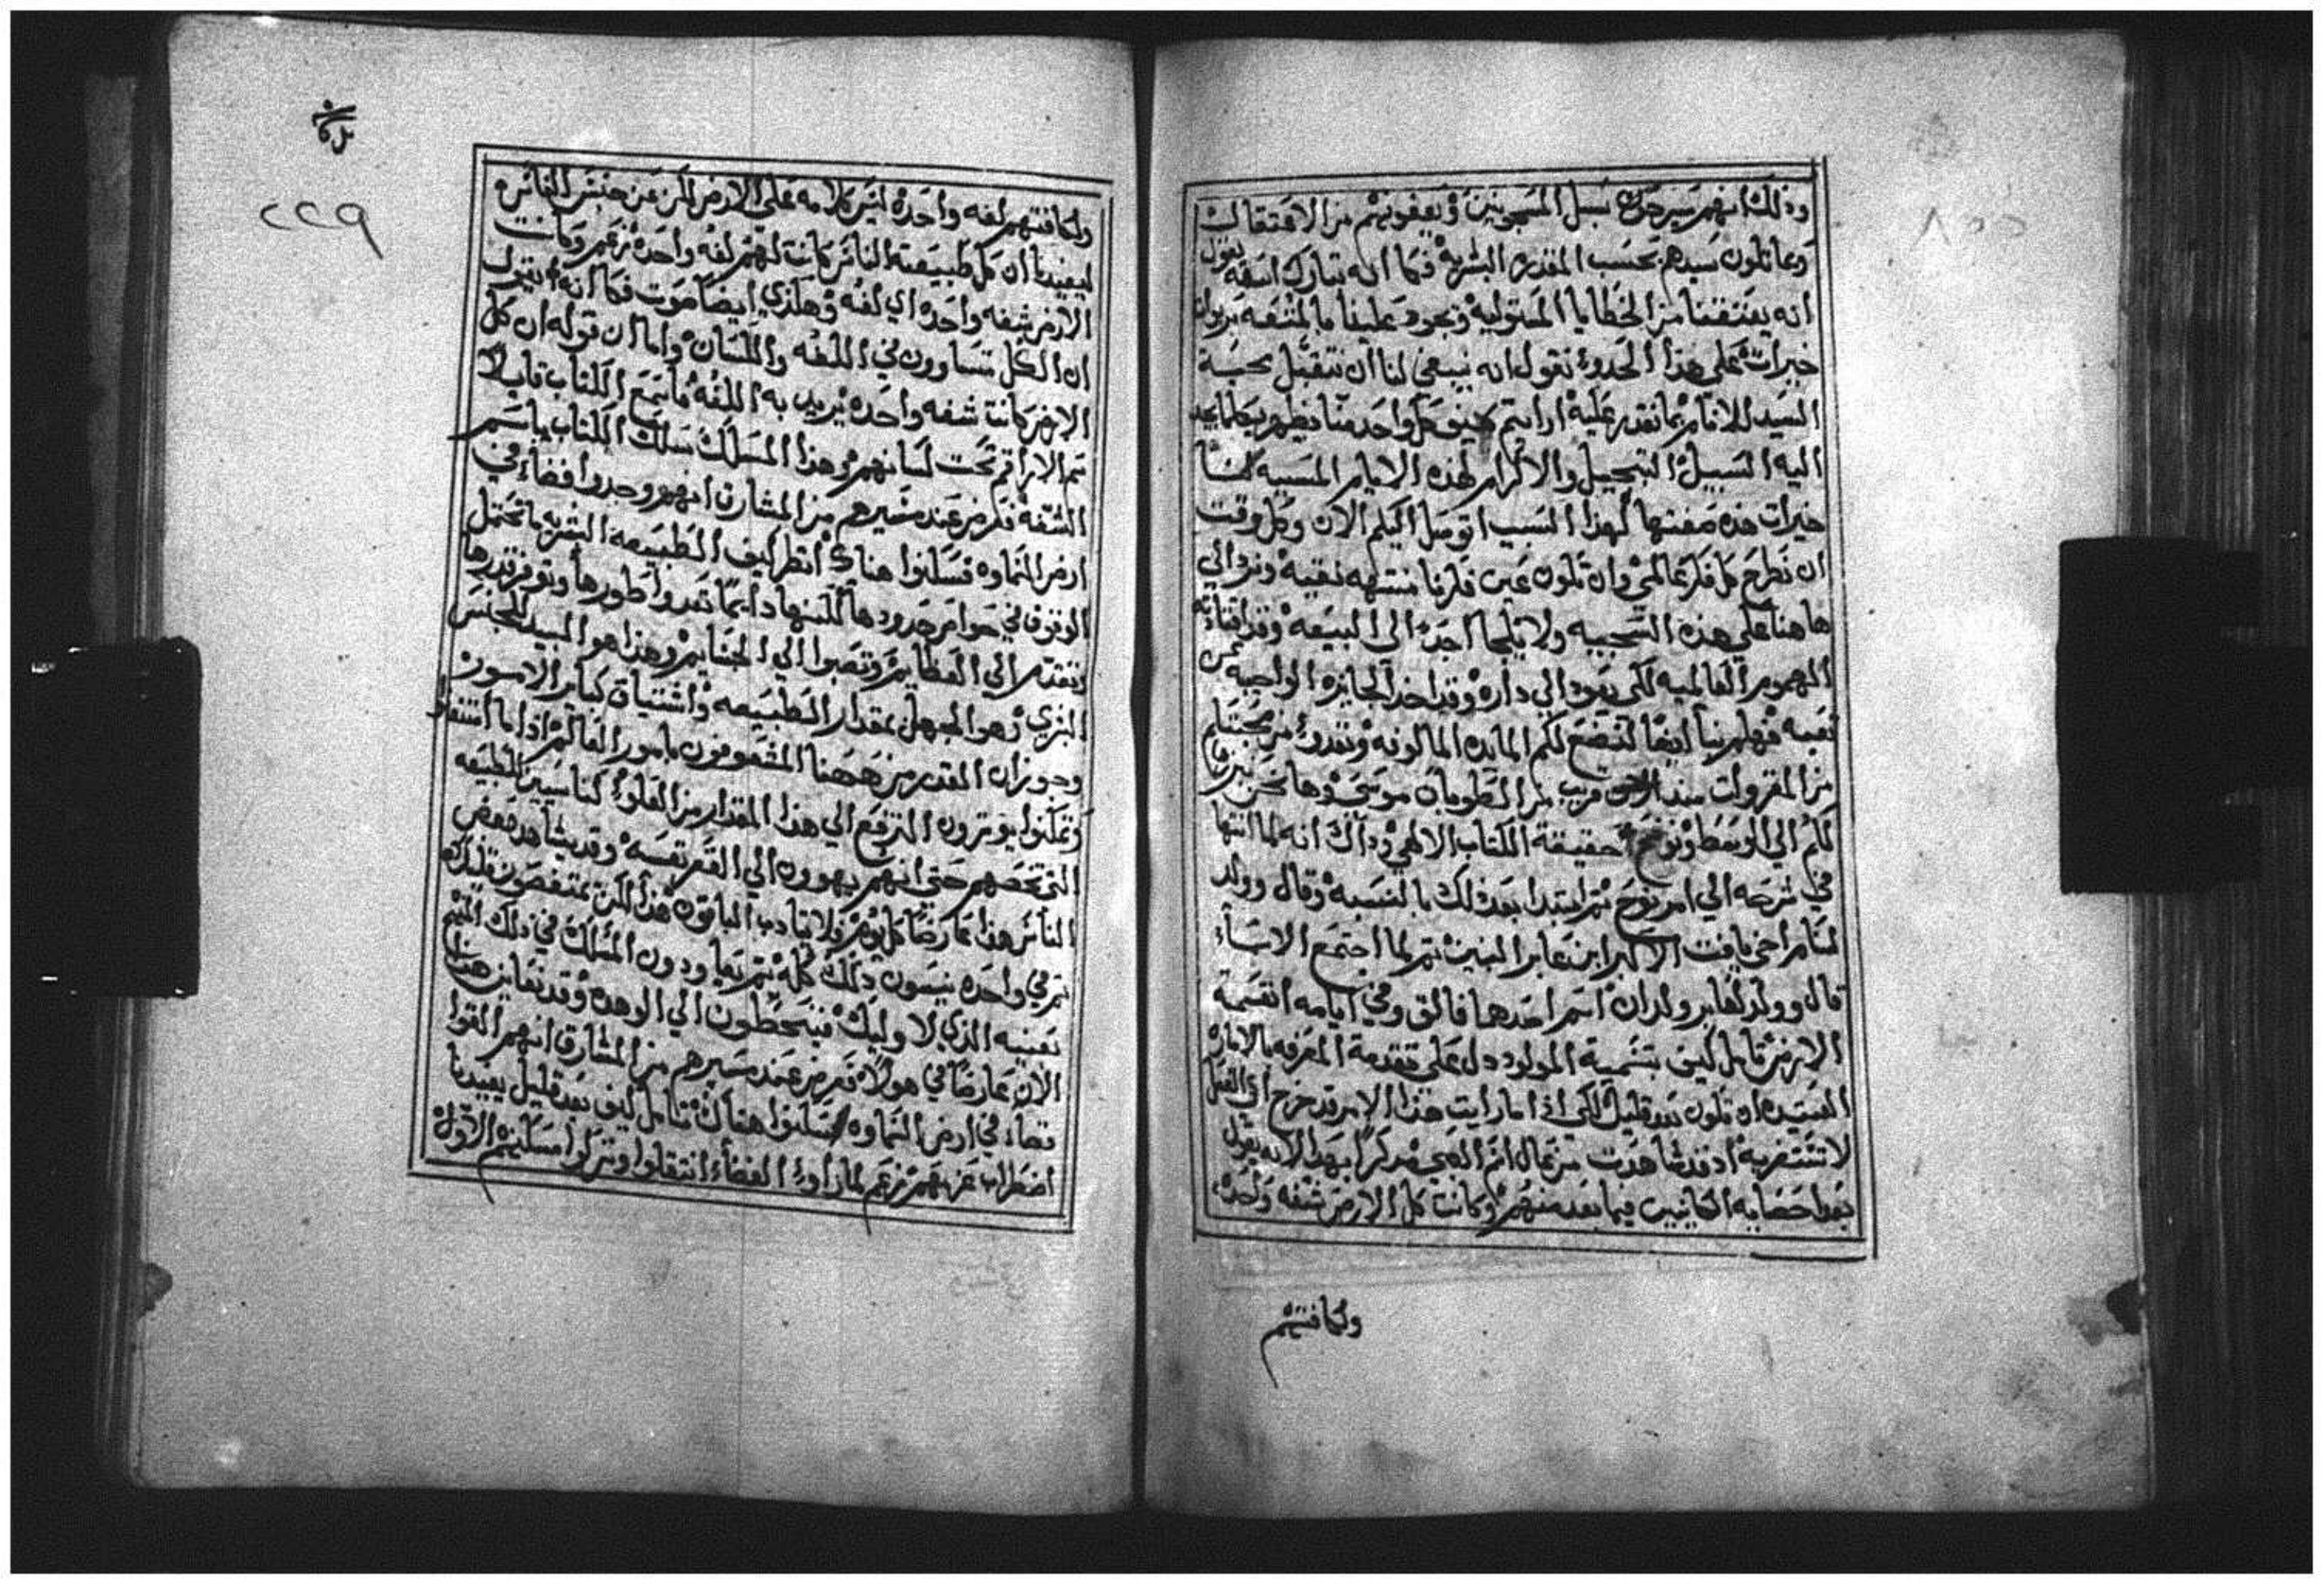 وذلك انهم يسرحون سبل المسجونين ويعفونهم من الاعتقالات
وعاتلون سيدهم بحسب المقدره البشريه فكما انه تبارك اسمه يقول
انه يعتقنا من الخطايا المستوليه ويجود علينا بالمتعه بربوات
خيرات على هذا الحدو نقول انه ينبغي لنا ان نتقبل محبة
السيد للانام بما نقدر عليه ارايتم كيف كل واحد منا يظهر بكلما يجد
اليه السبيل التبجيل والاكرام لهذه الايام المسببه لنا
خيرات هذه صفتها لهذا السبب اتوسل اليكم الان وكل وقت
ان نطرح كل فكر عالمي وان تكون عين فكرنا منتبهه نقيه ونرد الي
هاهنا على هذه السجيه ولا يلجا احد الى البيعه وقد اقتاته
الهموم العالميه لكي يعود الي داره وقد اخذ الجايزه الواجبه عن
تعبه فهلم بنا ايضا لنضع لكم المايده المالوفه ونغدو من محبتكم
من المقروات منذ قريب من الطوبان موسى وها نحن نبرز ما
لكم الي الوسط ونوضح حقيقة الكتاب الالهي وذاك انه لما انتها
في شرحه الي امر نوح ثم ابتدا بعد ذلك بالنسبه وقال وولد
لسام اخي يافت الاكبر ابن عابر البنين ثم لما اجتمع الاسماء
قال وولد لعابر ولدان اسم احدهما فالق وفي ايامه انقسمة
الارض تامل كيف بتسمية المولود دل على تقدمة المعرفه بالاماره
العتيده ان تكون بعد قليل لكي اذا ما رايت هذا الامر قد خرج الى الفعل
لا تستغربه اذ قد شاهدت من عال اسم الصبي مذكرا بهذا لانه يقول
بعد احصايه الكاينين فيما بعد منهم وكانت كل الارض شفه واحده
ولكافتهم
بركات
٢٢٩
ولكافتهم لغه واحده ليس كلامه على الارض لكن عن جنس الناس
ليفيدنا ان كل طبيعة الناس كانت لهم لغه واحده زعم وكانت
الارض شفه واحده اي لغه وهكذي ايضا صوت فكما انه يقول
ان الكل متساوون في اللغه واللسان واما ان قوله ان كل
الارض كانت شفه واحده يريد به اللغه فاسمع الكتاب قايلا
سم الاراقم تحت لسانهم وهذا المسلك سلك الكتاب باسم
الشفه فكر من عند مسيرهم من المشارق انهم وجدوا فضاء في
ارض السماوه فسكنوا هناك انظر كيف الطبيعه البشريه ما تحتمل
الوقوف في خواص حدودها لكنها دايما تعدوا طورها وتوفر قدرها
وتتقدم الي العظايم وتصبوا الي الجسايم وهذا هو المبيد للجنس
البشري وهو الجهل بمقدار الطبيعه واشتياق كباير الامور
وحوزان القدر من ههنا المشغوفون بامور العالم اذا ما استغنوا
وتمكنوا يوترون الترفع الي هذا المقدار من العلو كناسيين الطبيعه
التي تخصهم حتى انهم يهوون الي القعر نفسه وقد يشاهد بعض
الناس هذا عارضا كل يوم فلا يتادب الباقون هذا لكن يمتعضون قليلا
ثم في واحده ينسون ذلك كله ثم يعاودون المسلك في ذلك النهج
بعينه الذي لاوليك فينحطون الي الوهده وقد نعاين هذا
الان عارضا في هولاء فمن عند مسيرهم من المشارق انهم القوا
بقعة في ارض السماوه وسكنوا هناك تامل كيف بعد قليل يفيدنا
اضطراب عزمهم زعم لما راوا الفضاء انتقلوا وتركوا مسكنهم الاول